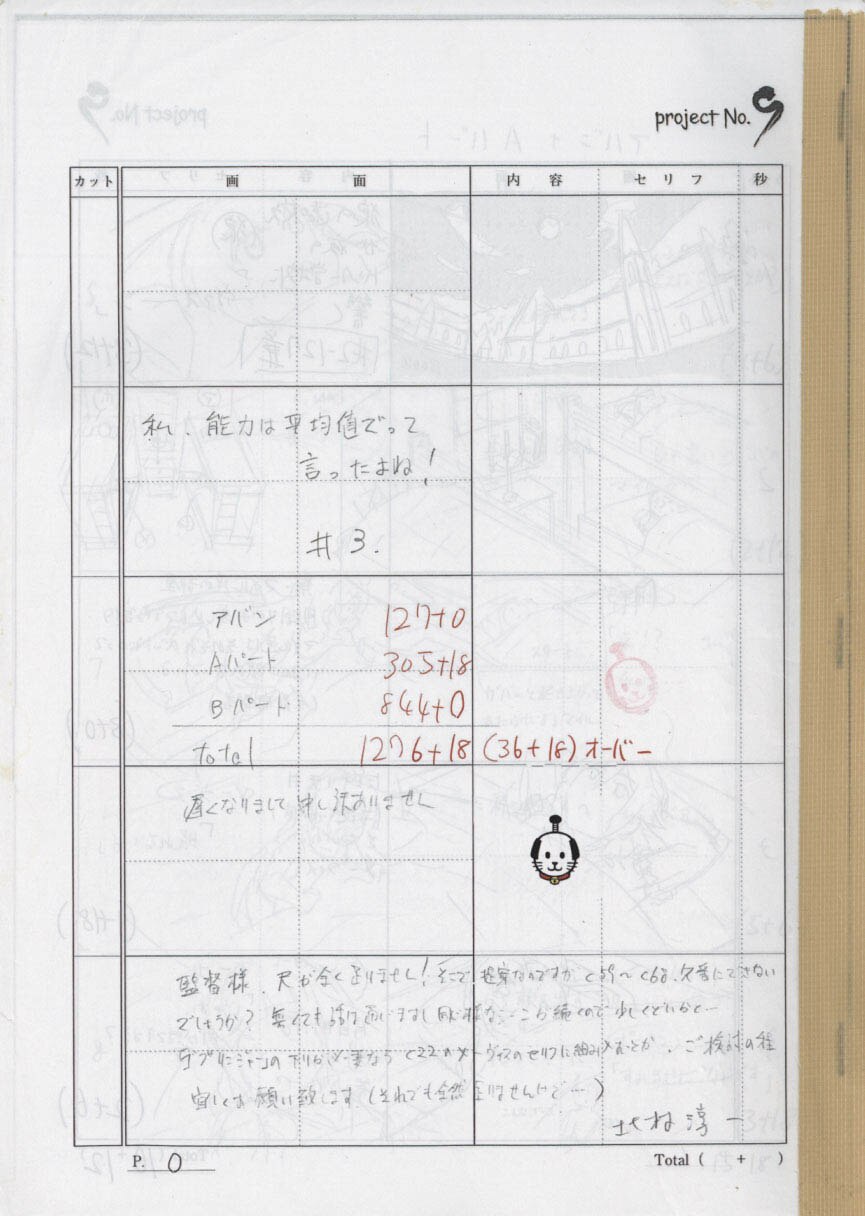 project No.9
カット 画面 内容 セリフ 秒
私、能力は平均値でって
言ったよね!
#3.
アバン 127+0
Aパート 305+18
Bパート 844+0
total 1276+18 (36+18) オーバー
遅くなりまして申し訳ありません
監督様、尺が全く足りません!そこで提案なのですが C59〜C68、欠番にできない
でしょうか? 無くても話は通いますし 同じ様な が続くので 少しくどいかと…
の下りが必要なら C22の メーヴィスのセリフに組み とか、ご検討の程
宜しくお願い致します。(それでも全然足りませんけど…)
淳一
P. 0
Total ( + )